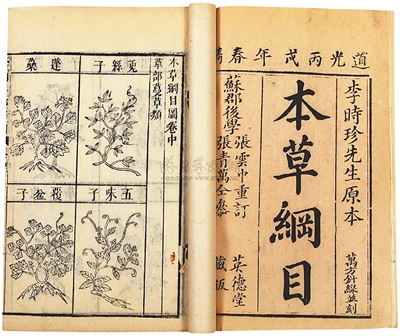 道光丙戌年春
李時珍先生原本
本草綱目
萬方針線並刻
蘇郡後學
張雲中重訂
張青萬仝參
英德堂
藏板
本草綱目圖卷中
草部蔓草類
兎絲子
五味子
蓬蘽
覆盆子